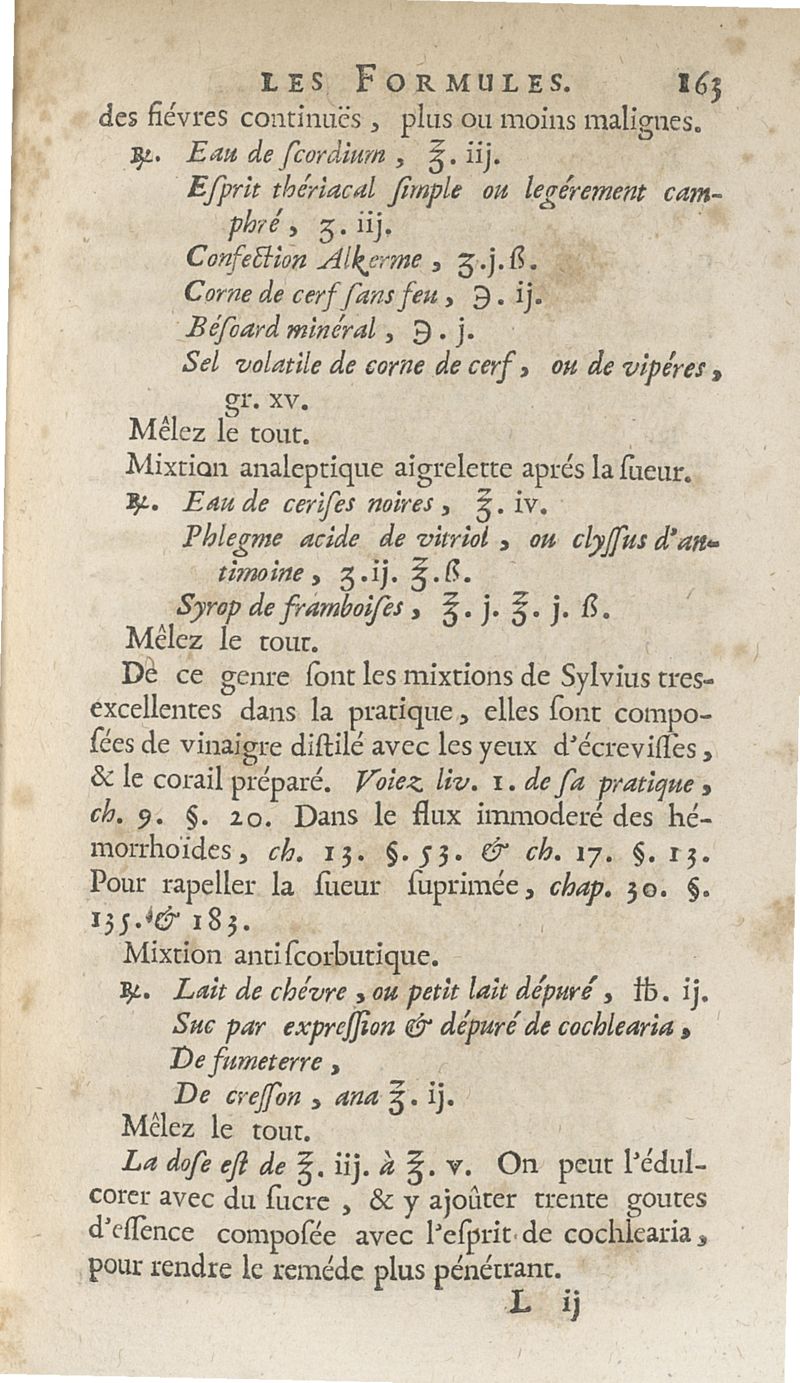 LES FORMULES. 163
des fiévres continuës, plus ou moins malignes.
℞. Eau de ſcordium, ℥. iij.
Eſprit thériacal ſimple ou legérement cam-
phré, ʒ. iij.
Confection Alkerme, ʒ.j.ß.
Corne de cerf ſans feu, ℈. ij.
Béſoard minéral, ℈. j.
Sel volatile de corne de cerf, ou de vipéres,
gr. xv.
Mêlez le tout.
Mixtion analeptique aigrelette aprés la ſueur.
℞. Eau de ceriſes noires, ℥. iv.
Phlegme acide de vitriol, ou clyſſus d'an-
timoine, ʒ.ij. ℥.ß.
Syrop de framboiſes, ℥. j. ℥. j. ß.
Mêlez le tout.
De ce genre ſont les mixtions de Sylvius tres-
excellentes dans la pratique, elles ſont compo-
ſées de vinaigre diſtilé avec les yeux d'écreviſſes,
& le corail préparé. Voiez liv. 1. de ſa pratique,
ch. 9. §. 20. Dans le flux immoderé des hé-
morrhoïdes, ch. 13. §. 53. & ch. 17. §. 13.
Pour rapeller la ſueur ſuprimée, chap. 30. §.
135. & 183.
Mixtion antiſcorbutique.
℞. Lait de chévre, ou petit lait dépuré, ℔. ij.
Suc par expreſſion & dépuré de cochlearia,
De fumeterre,
De creſſon, ana ℥. ij.
Mêlez le tout.
La doſe eſt de ℥. iij. à ℥. v. On peut l'édul-
corer avec du ſucre, & y ajoûter trente goutes
d'eſſence compoſée avec l'eſprit de cochlearia,
pour rendre le reméde plus pénétrant.
L ij